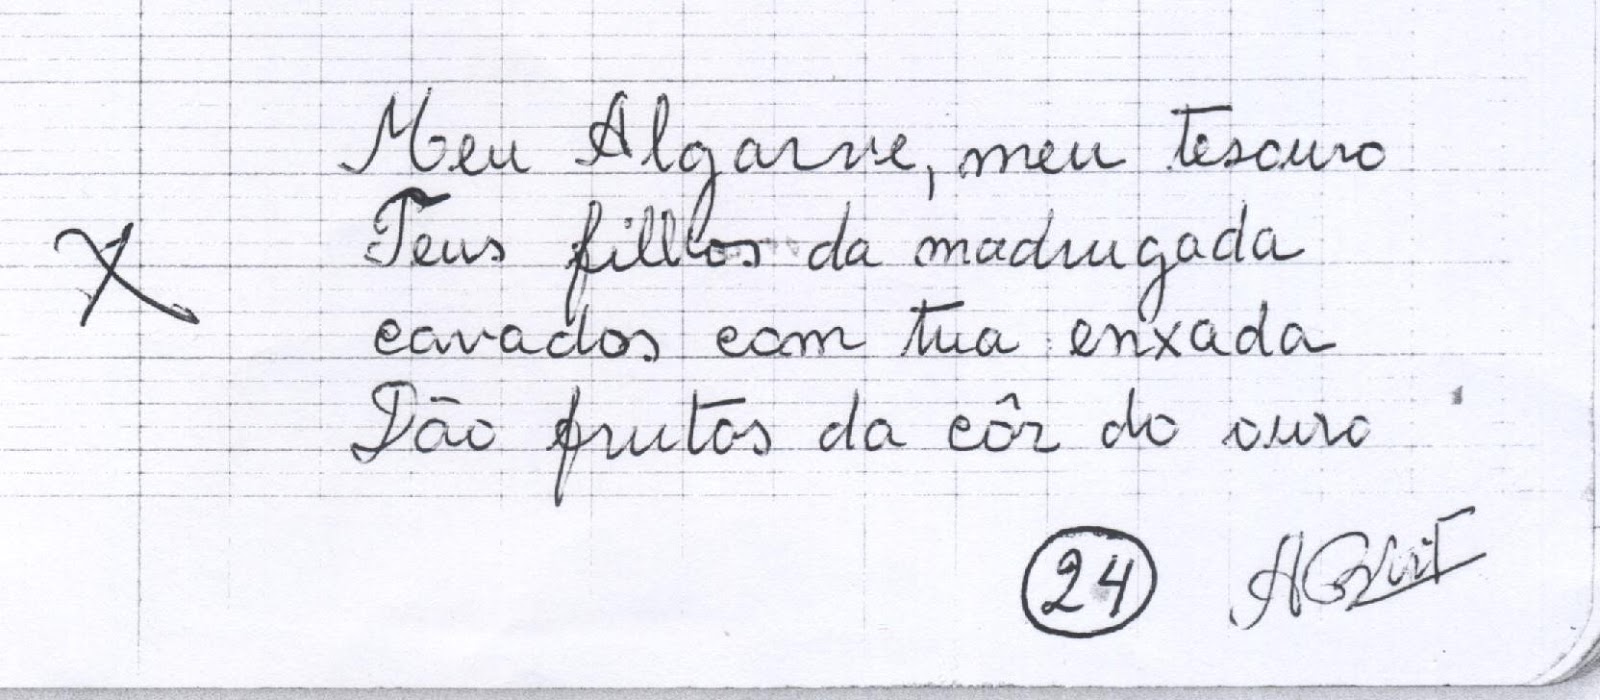 X
Meu Algarve, meu tesouro
Teus filhos da madrugada
cavados com tua enxada
Dão frutos da côr do ouro
24